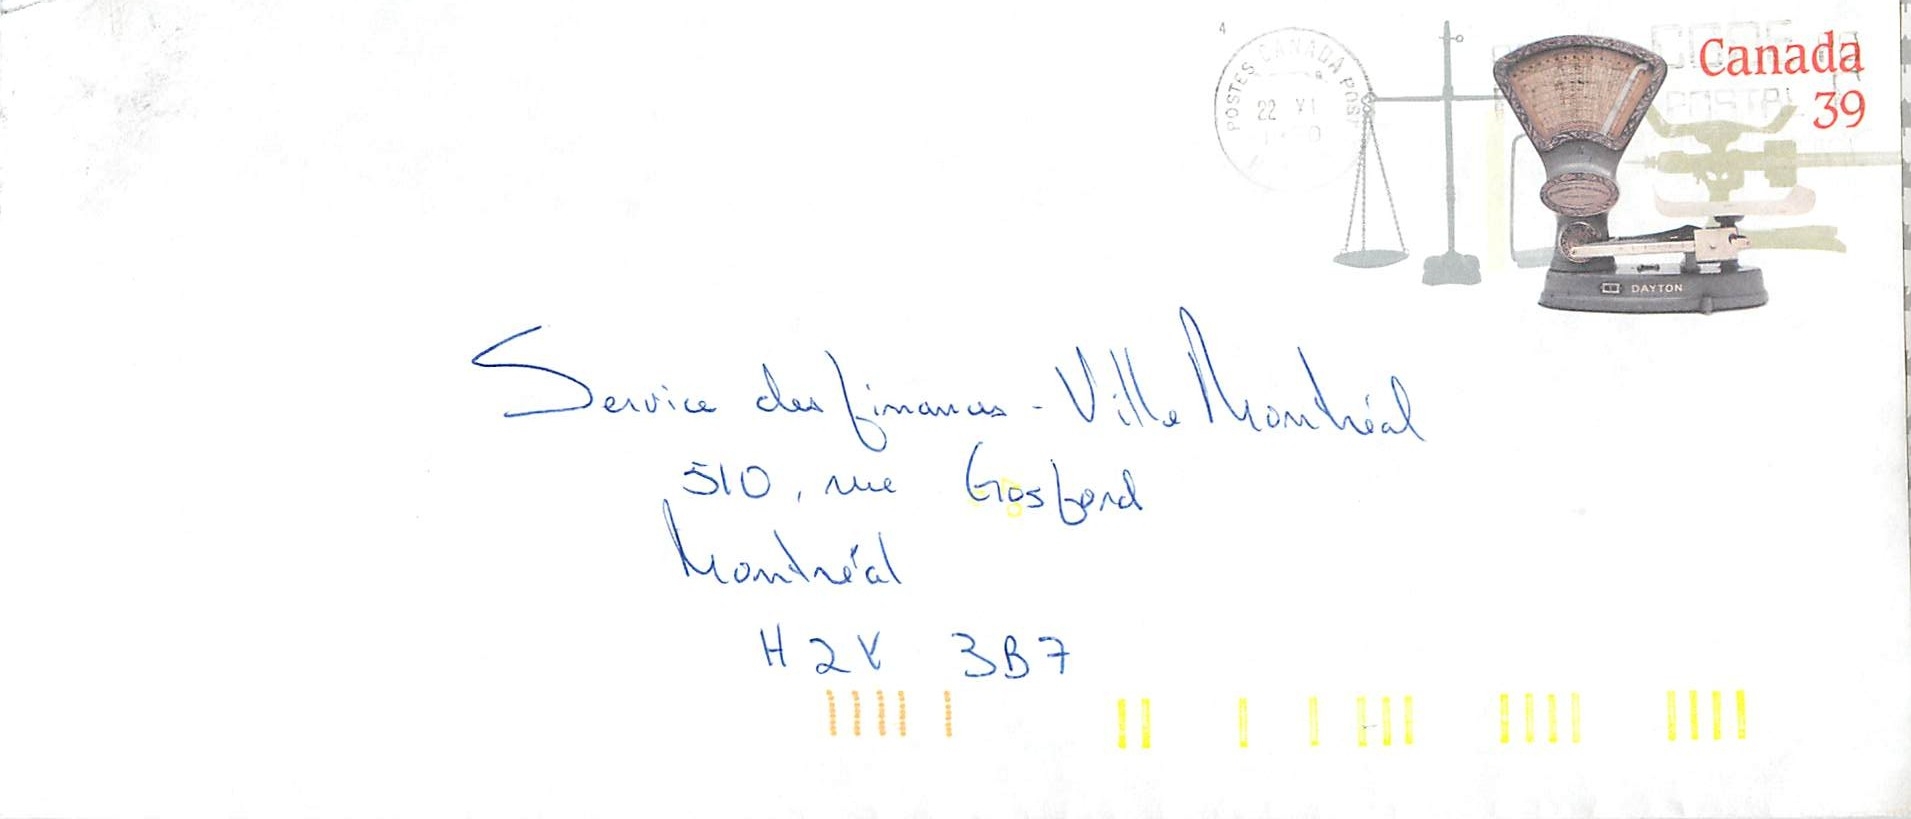 4
POSTES CANADA POST
22 VI
Canada
39
DAYTON
Service des finances - Ville Montréal
510, rue Gosford
Montréal
H2Y 3B7